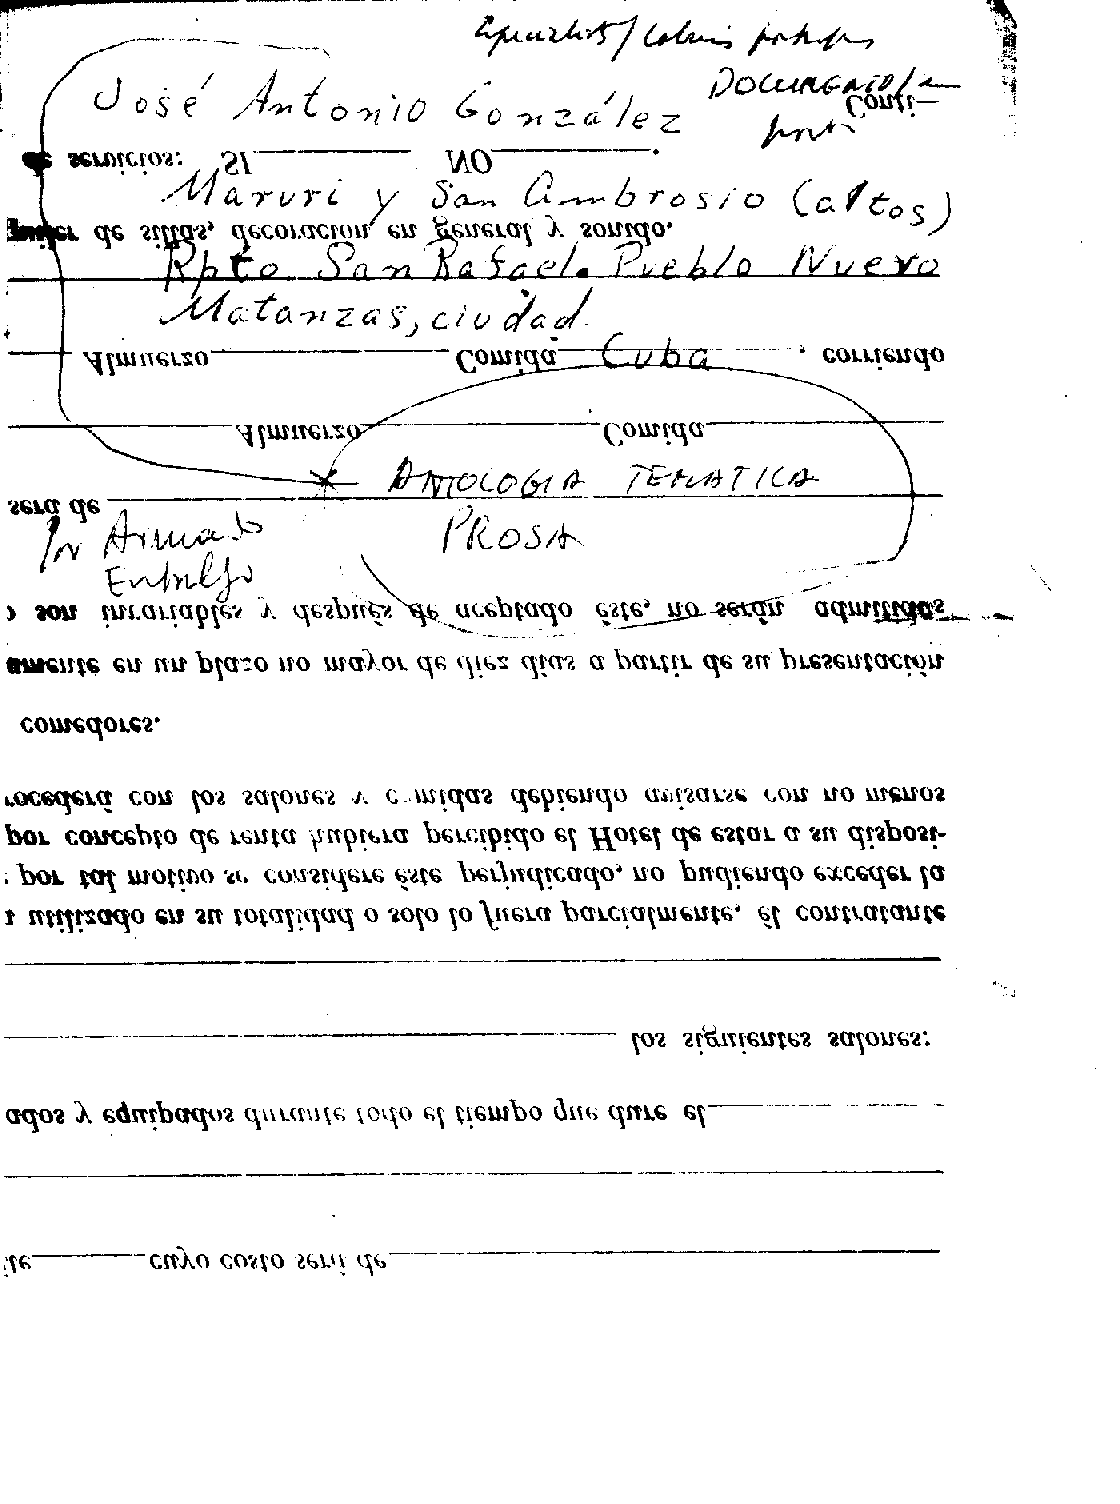 DOCUMENTO/
José Antonio González Confi-
de servicios: SI NO
Maruri y San Ambrosio (altos)
de sillas, decoración en general y sonido.
Rpto San Rafael. Pueblo Nuevo
Matanzas, ciudad.
Almuerzo Comida Cuba , corriendo
Almuerzo Comida
ANTOLOGIA TEMATICA
será de
PROSA
son invariables y después de aceptado éste, no serán admitidas
amente en un plazo no mayor de diez días a partir de su presentación
comedores.
rocederá con los salones y comidas debiendo avisarse con no menos
por concepto de renta hubiera percibido el Hotel de estar a su disposi-
por tal motivo se considere éste perjudicado, no pudiendo exceder la
utilizado en su totalidad o solo lo fuera parcialmente, el contratante
los siguientes salones:
ados y equipados durante todo el tiempo que dure el
cuyo costo será de